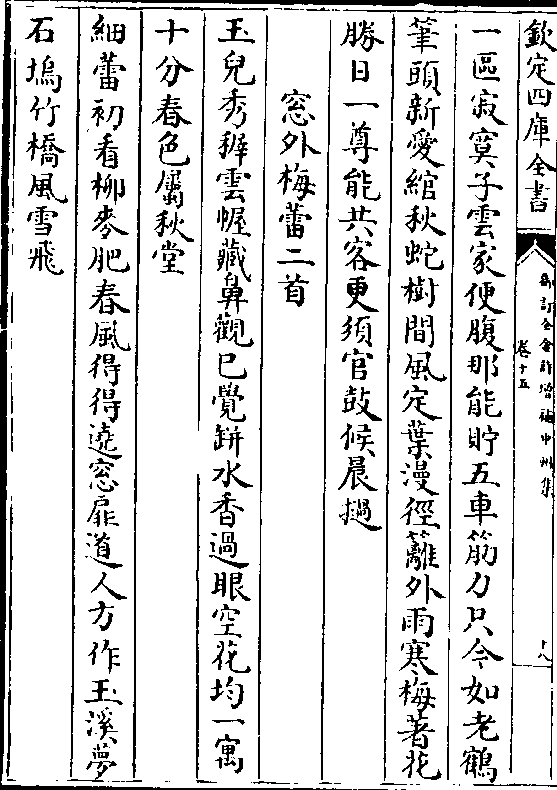 欽定四庫全書
御訂全金詩增補中州集
卷十五
十八
一區寂寞子雲家便腹那能貯五車筋力只今如老鶴
筆頭新愛綰秋蛇樹間風定葉漫徑籬外雨寒梅著花
勝日一尊能共客更須官鼓候晨撾
窓外梅蕾二首
玉兒秀稺雲幄藏鼻觀已覺缾水香過眼空花均一寓
十分春色屬秋堂
細蕾初看柳麥肥春風得得遶窓扉道人方作玉溪夢
石塢竹橋風雪飛